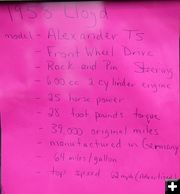 1953 Lloyd
model - Alexander TS
- Front Wheel Drive
- Rack and Pin Steering
- 600 cc 2 cylinder engine
- 25 horse power
- 28 foot pounds torque
- 39,000 original miles
- manufactured in Germany
- 64 miles/gallon
- top speed 62 mph (determined)